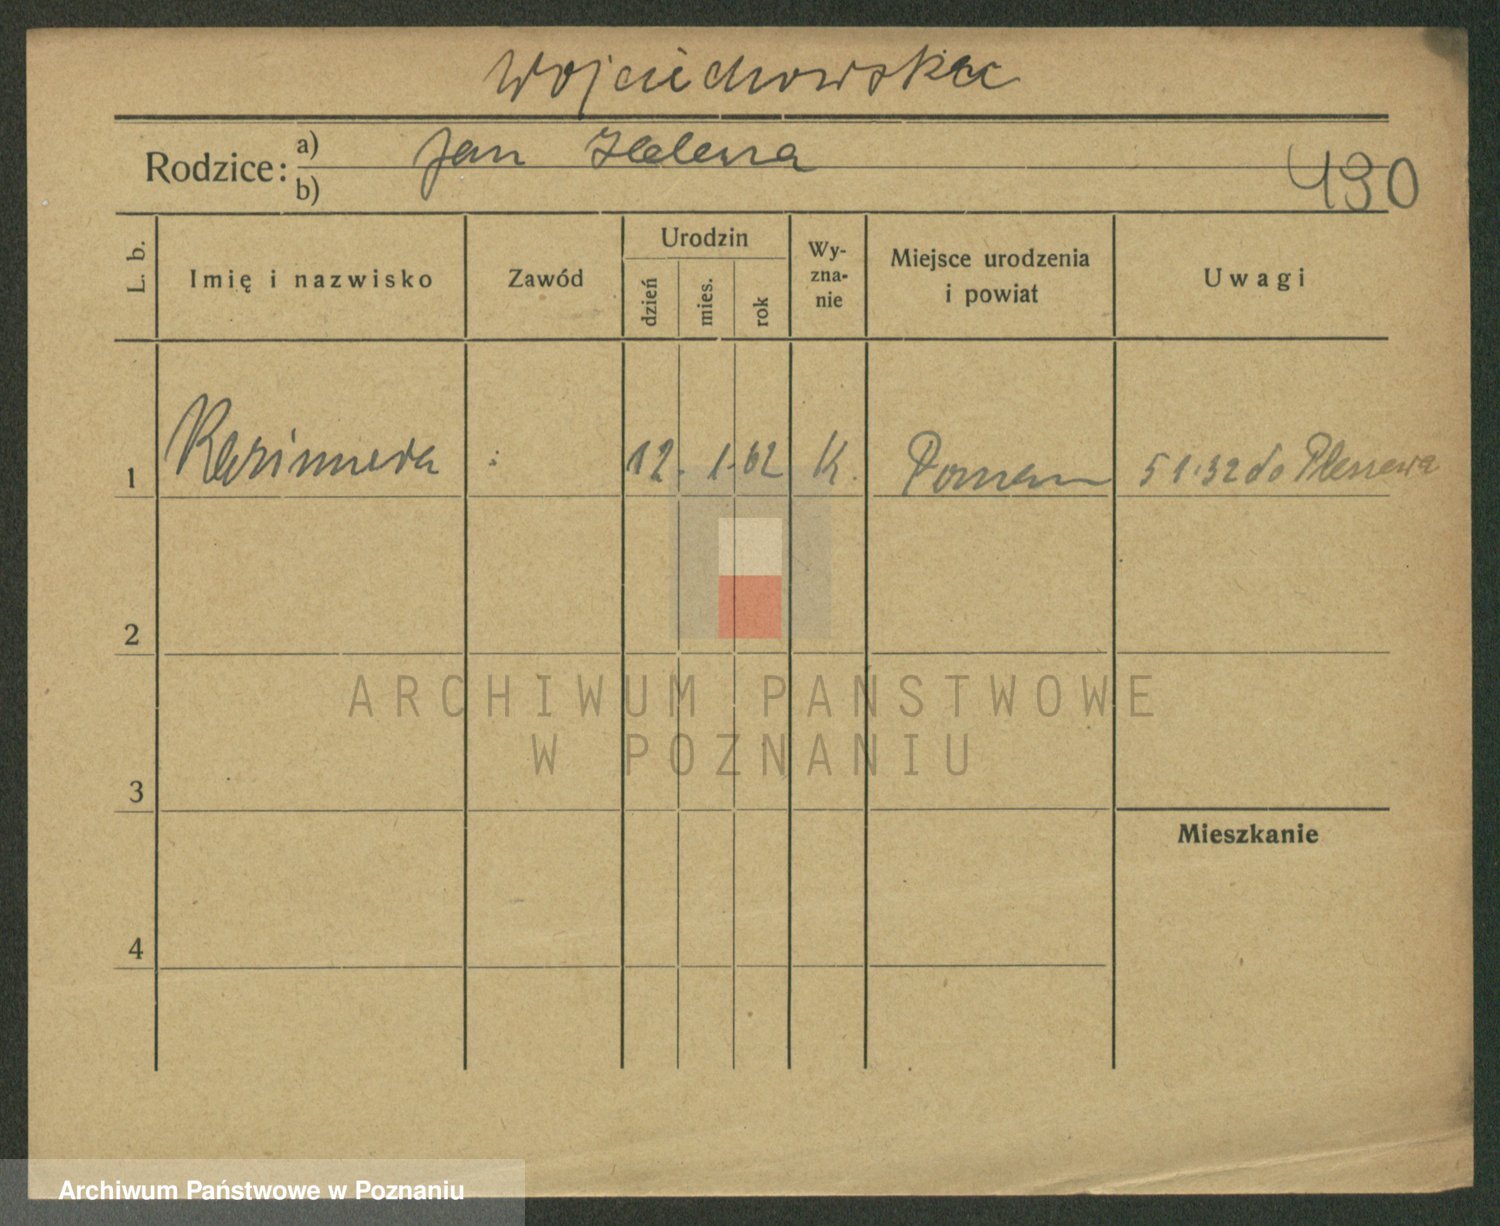 Wojciechowska
Rodzice: a) Jan Helena
b)
490
L. b.
Imię i nazwisko
Zawód
Urodzin
dzień
mies.
rok
Wy-
zna-
nie
Miejsce urodzenia
i powiat
Uwagi
1 Kazimiera 12. 1. K. Poznań 5 1.32 do Pleszewa
2
3
4
Mieszkanie
ARCHIWUM PAŃSTWOWE
W POZNANIU
Archiwum Państwowe w Poznaniu